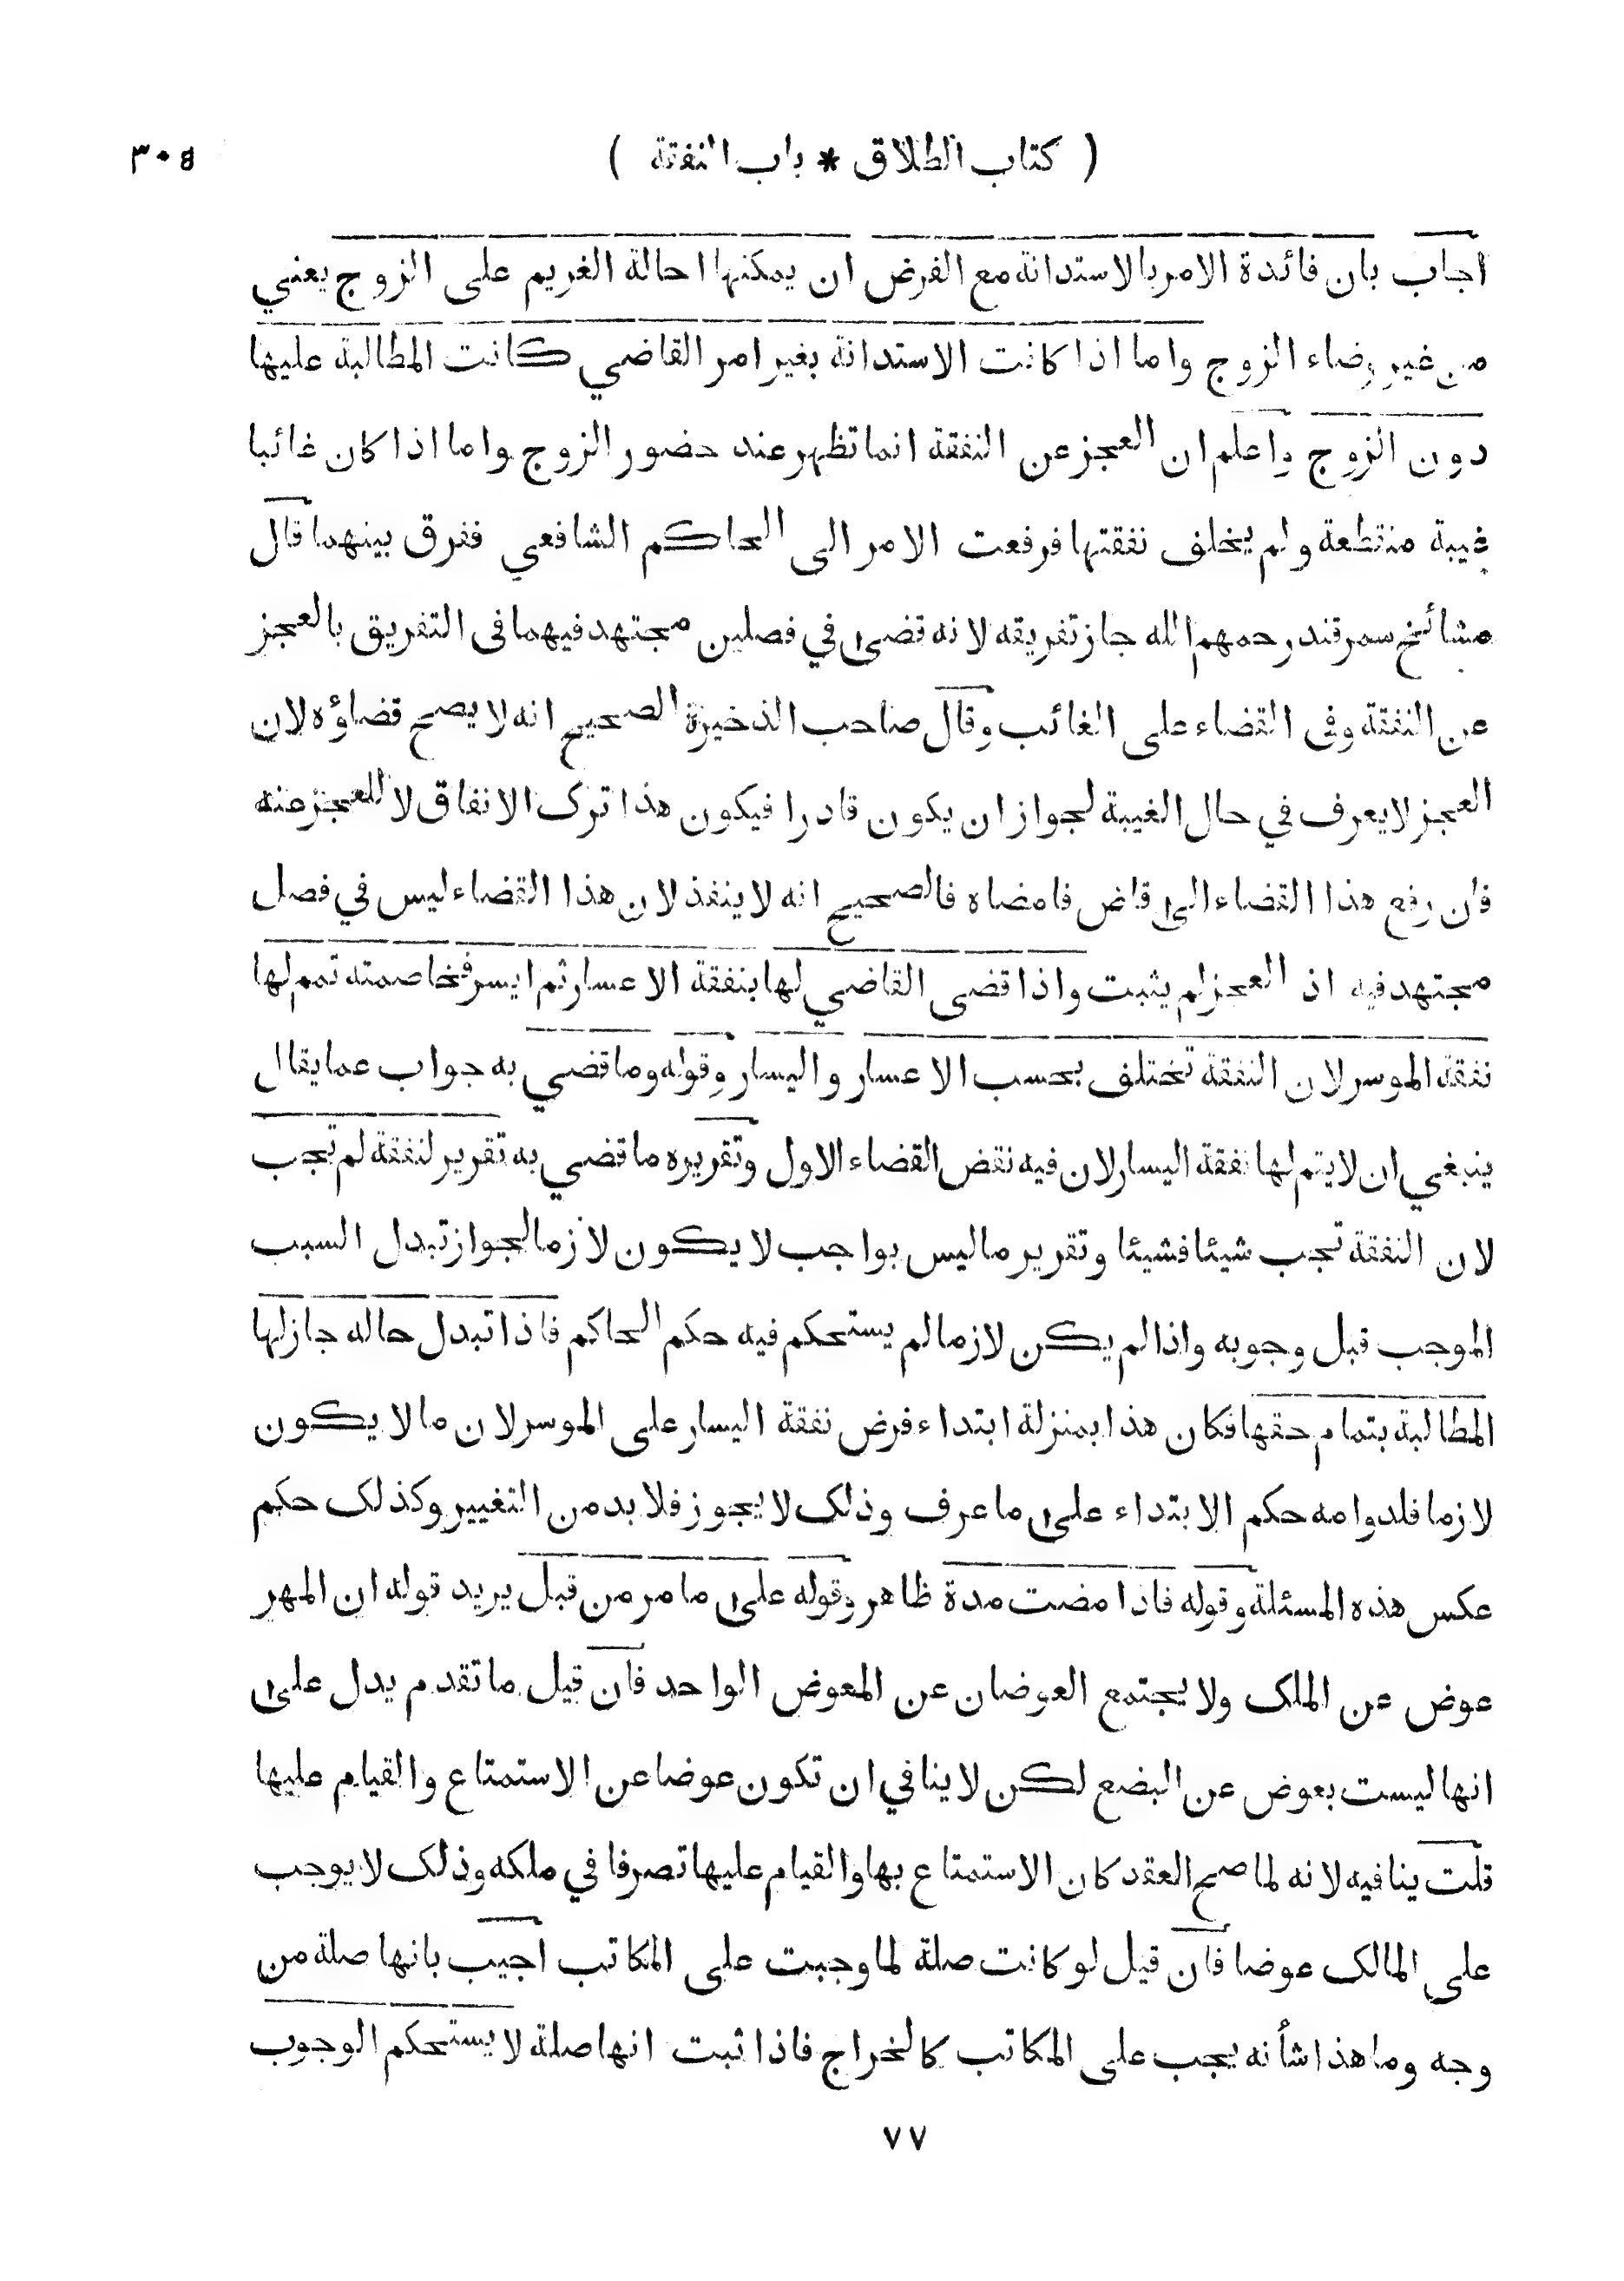 ( كتاب الطلاق * باب النفقة ) ٣٠٥
اجاب بان فائدة الامر بالاستدانة مع الفرض ان يمكنها احالة الغريم على الزوج يعني
من غير رضاء الزوج واما اذا كانت الاستدانة بغير امر القاضي كانت المطالبة عليها
دون الزوج واعلم ان العجز عن النفقة انما تظهر عند حضور الزوج واما اذا كان غائبا
غيبة منقطعة ولم يخلف نفقتها فرفعت الامر الى الحاكم الشافعي ففرق بينهما قال
مشائخ سمرقند رحمهم الله جاز تفريقه لانه قضى في فصلين مجتهد فيهما في التفريق بالعجز
عن النفقة وفي القضاء على الغائب وقال صاحب الذخيرة الصحيح انه لا يصح قضاؤه لان
العجز لا يعرف في حال الغيبة لجواز ان يكون قادرا فيكون هذا ترك الانفاق لا للعجز عنه
فان رفع هذا القضاء الى قاض فامضاه فالصحيح انه لا ينفذ لان هذا القضاء ليس في فصل
مجتهد فيه اذ العجز لم يثبت واذا قضى القاضي لها بنفقة الاعسار ثم ايسر فخاصمته تمم لها
نفقة الموسر لان النفقة تختلف بحسب الاعسار واليسار وقوله وما قضي به جواب عما يقال
ينبغي ان لا يتم لها نفقة اليسار لان فيه نقض القضاء الاول وتقريره ما قضي به تقرير لنفقة لم تجب
لان النفقة تجب شيئا فشيئا وتقرير ما ليس بواجب لا يكون لازما لجواز تبدل السبب
الموجب قبل وجوبه واذا لم يكن لازما لم يستحكم فيه حكم الحاكم فاذا تبدل حاله جاز لها
المطالبة بتمام حقها فكان هذا بمنزلة ابتداء فرض نفقة اليسار على الموسر لان ما لا يكون
لازما فلدوامه حكم الابتداء على ما عرف وذلك لا يجوز فلا بد من التغيير وكذلك حكم
عكس هذه المسئلة وقوله فاذا مضت مدة ظاهر وقوله على ما مر من قبل يريد قوله ان المهر
عوض عن الملك ولا يجتمع العوضان عن المعوض الواحد فان قيل ما تقدم يدل على
انها ليست بعوض عن البضع لكن لا ينافي ان تكون عوضا عن الاستمتاع والقيام عليها
قلت ينافيه لانه لما صح العقد كان الاستمتاع بها والقيام عليها تصرفا في ملكه وذلك لا يوجب
على المالك عوضا فان قيل لو كانت صلة لما وجبت على المكاتب اجيب بانها صلة من
وجه وما هذا شأنه يجب على المكاتب كالخراج فاذا ثبت انها صلة لا يستحكم الوجوب
٧٧